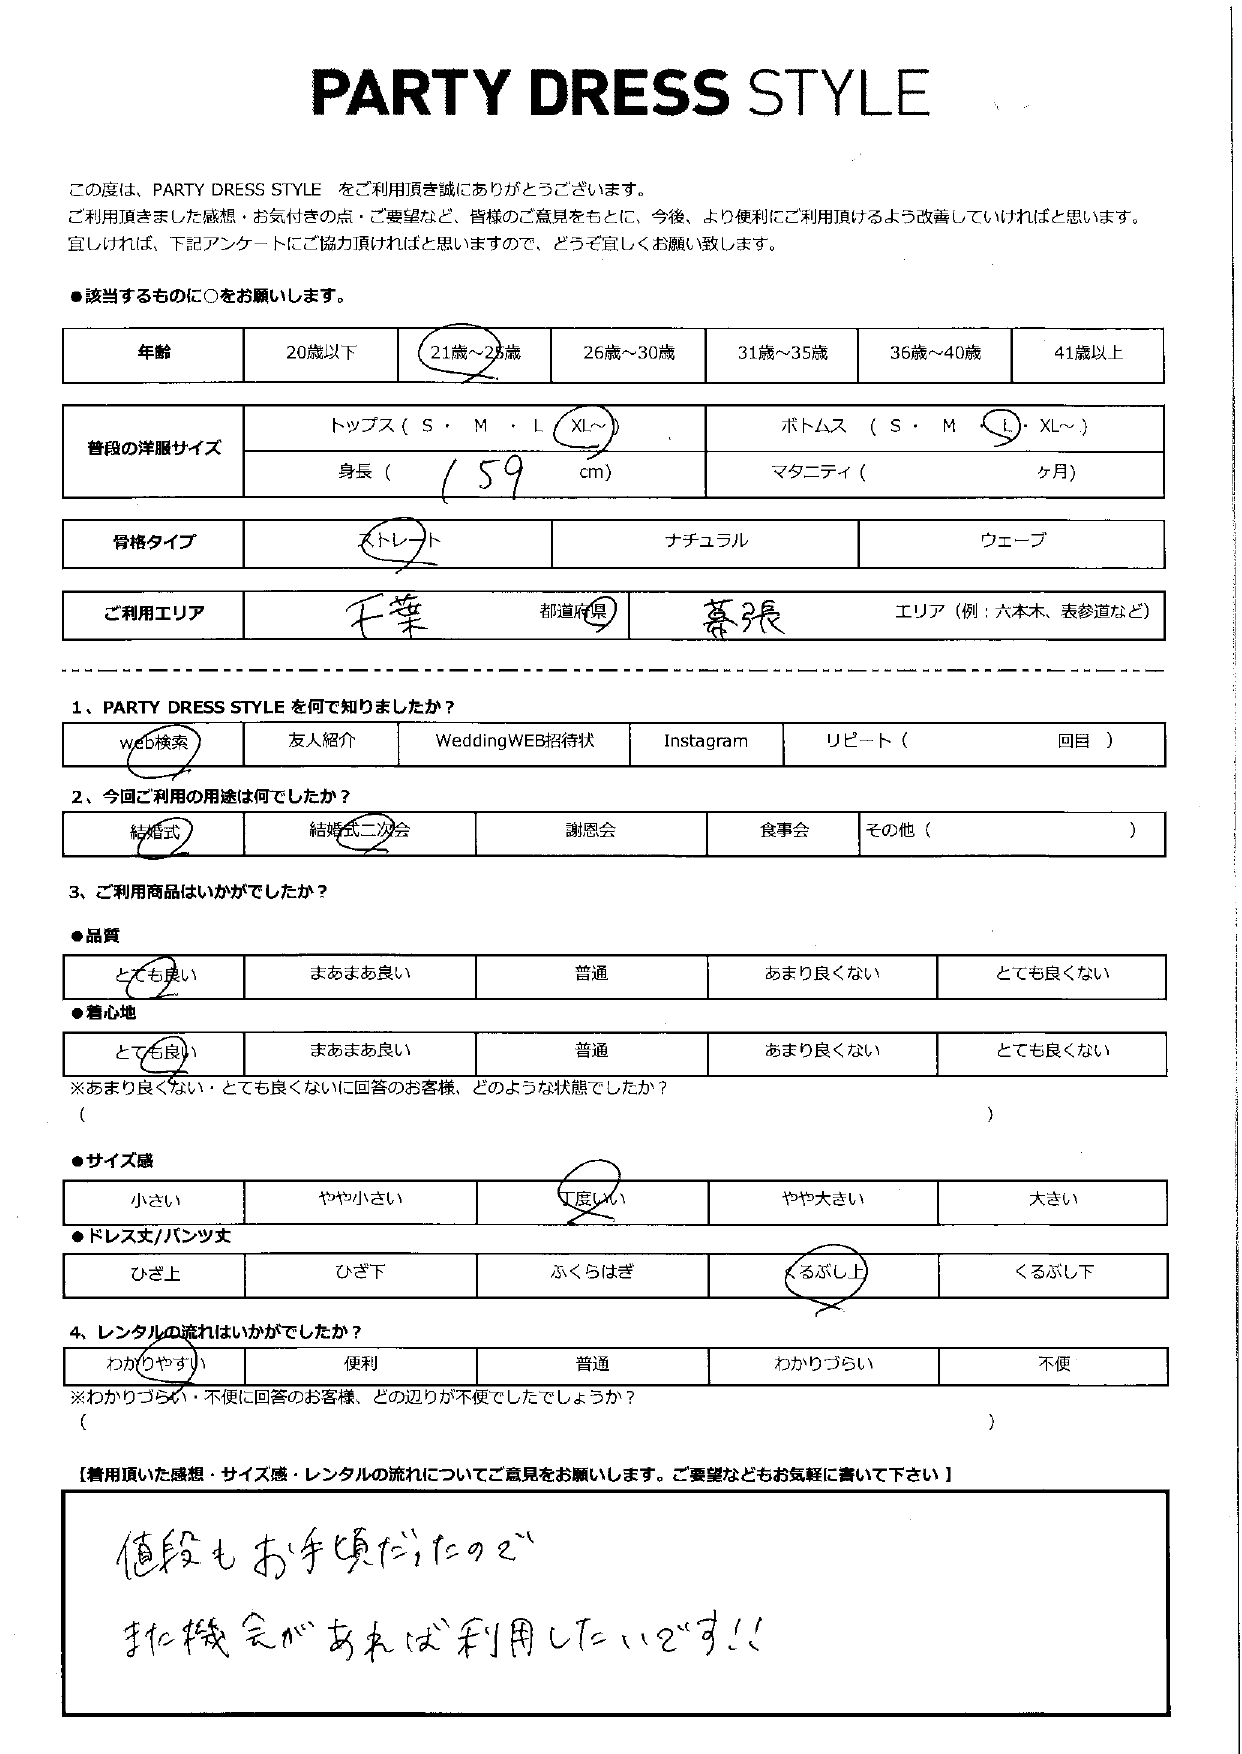 PARTY DRESS STYLE
この度は、PARTY DRESS STYLE　をご利用頂き誠にありがとうございます。
ご利用頂きました感想・お気付きの点・ご要望など、皆様のご意見をもとに、今後、より便利にご利用頂けるよう改善していければと思います。
宜しければ、下記アンケートにご協力頂ければと思いますので、どうぞ宜しくお願い致します。
●該当するものに○をお願いします。
年齢 20歳以下 21歳～25歳 26歳～30歳 31歳～35歳 36歳～40歳 41歳以上
普段の洋服サイズ
トップス ( S ・ M ・ L ・ XL～ ) ボトムス ( S ・ M ・ L ・ XL～ )
身長 ( 159 cm) マタニティ ( ヶ月)
骨格タイプ ストレート ナチュラル ウェーブ
ご利用エリア 千葉 都道府県 幕張 エリア（例：六本木、表参道など）
1、PARTY DRESS STYLE を何で知りましたか？
web検索 友人紹介 WeddingWEB招待状 Instagram リピート ( 回目 )
2、今回ご利用の用途は何でしたか？
結婚式 結婚式二次会 謝恩会 食事会 その他 ( )
3、ご利用商品はいかがでしたか？
●品質
とても良い まあまあ良い 普通 あまり良くない とても良くない
●着心地
とても良い まあまあ良い 普通 あまり良くない とても良くない
※あまり良くない・とても良くないに回答のお客様、どのような状態でしたか？
( )
●サイズ感
小さい やや小さい 丁度いい やや大きい 大きい
●ドレス丈/パンツ丈
ひざ上 ひざ下 ふくらはぎ くるぶし上 くるぶし下
4、レンタルの流れはいかがでしたか？
わかりやすい 便利 普通 わかりづらい 不便
※わかりづらい・不便に回答のお客様、どの辺りが不便でしたでしょうか？
( )
【着用頂いた感想・サイズ感・レンタルの流れについてご意見をお願いします。ご要望などもお気軽に書いて下さい 】
値段もお手頃だったので
また機会があれば利用したいです!!